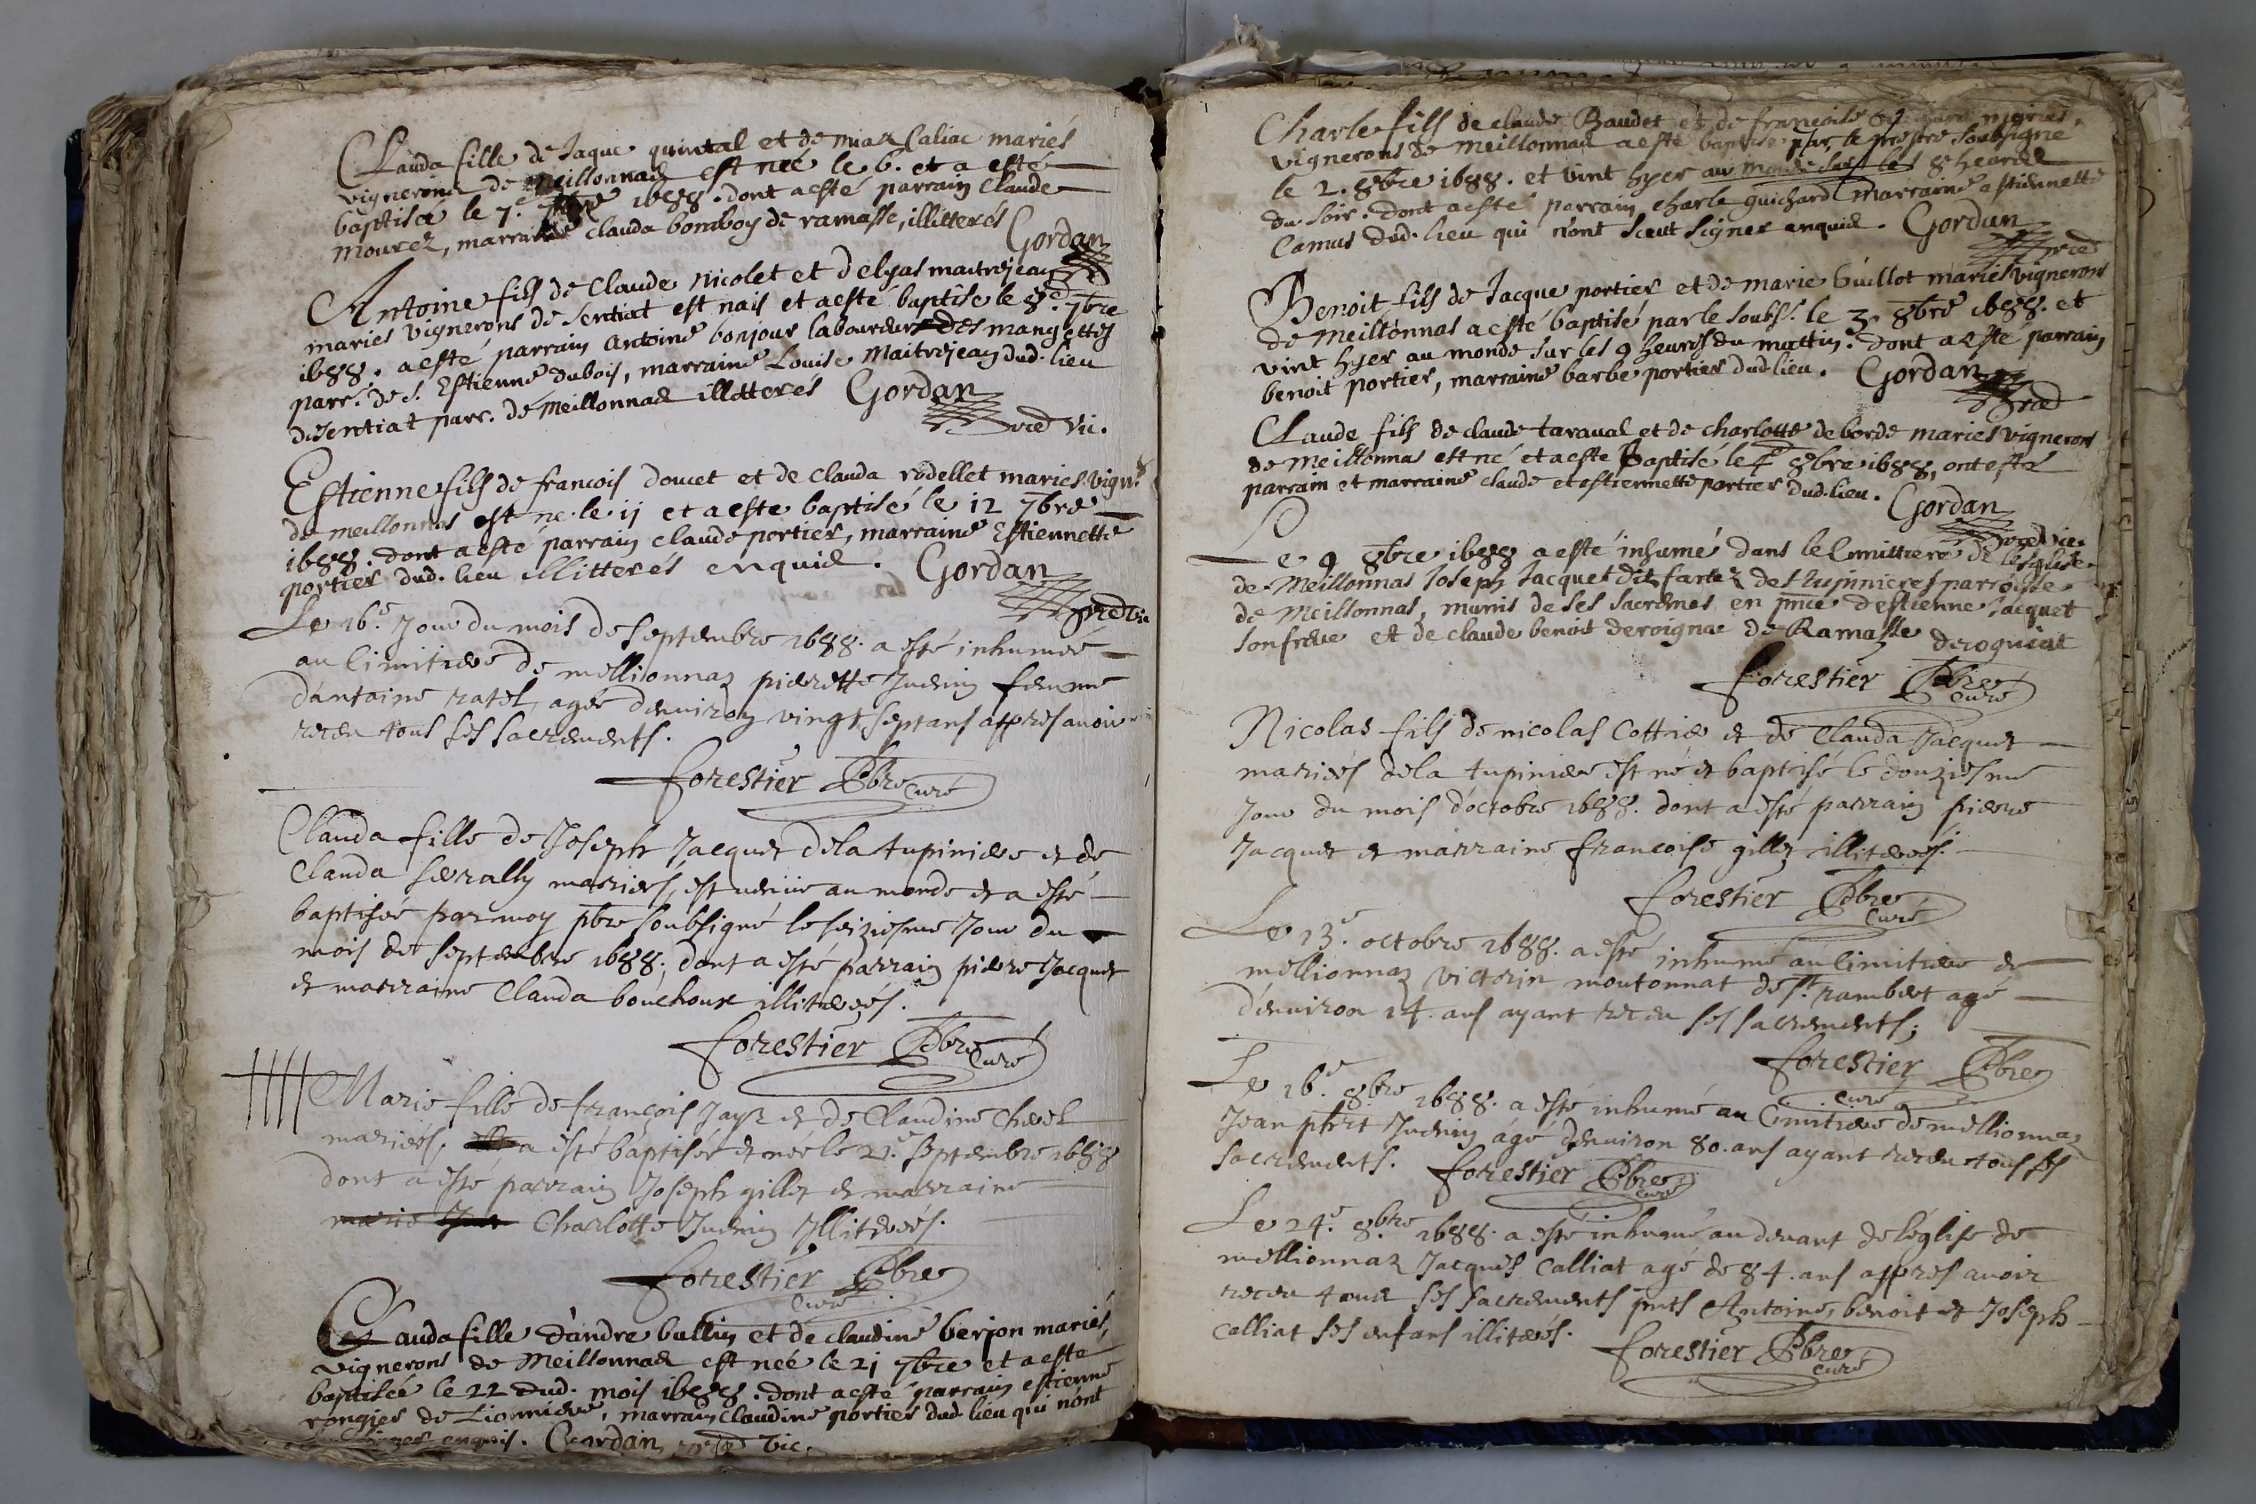 Clauda fille de Jaque quintal et de miaz Caliac mariés
vignerons de Meillonnad est neé le 6. et a esté
baptisée le 7.e 7bre 1688. dont a esté parrain Claude
mourez, marraine clauda bomboy de ramasse, illitterés
Gordan
Antoine fils de Claude Nicolet et delyas maitrejean
mariés vignerons de Sentiat est nais et a esté baptisé le 8e. 7bre
1688. a esté parrain Antoine bonjour laboureur des mangettes
parr. de S. Estienne dubois, marraine Louise Maitrejean dud. lieu
de Sentiat parr. de Meillonnad illitterés Gordan
vic.
Estienne fils de francois doucet et de Clauda rodellet mariés vign.s
de meillonnas est né le 11 et a esté baptisé le 12 7bre
1688. dont a esté parrain claude portier, marraine Estiennette
portier dud. lieu illitterés enquid. Gordan
Le 16.e Jour du mois de Septembre 1688. a esté inhumée
au Cimitiere de mellionnaz pierette Juenin femme
d'antoine ratel, agée denviron vingt sept ans appres avoir
receu tous ses sacrements.
forestier Pbre curé
Clauda fille de Joseph Jacquet dela tupiniere et de
Clauda serrally mariés, est venüe au monde et a esté
baptisée par moy pbre soubsigné le seiziesme Jour du
mois de Septembre 1688. dont a esté parrain piere Jacquet
et marraine Clauda bouchoux illiterés.
forestier Pbre Curé
Marie fille de françois Jayr et de Claudine Chevel
mariés, a esté baptisée et née le 21.e Septembre 1688
dont a esté parrain Joseph gillet et marraine
marie Charlotte Juenin Illiterés.
forestier Pbre
Curé
Clauda fille d'andre bullin et de claudine berjon mariés,
vignerons de Meillonnad est neé le 21 7bre et a esté
baptisée le 22 dud. mois 1688. dont a esté parrain estienne
rongier de Lionniere, marrain claudine portier dud. lieu qui n'ont
signer enquis. Gordan vic.
Charle fils de claude Baudet et de francoise mariés,
vignerons de meillonnad a esté baptisé par le prestre soubsigné
le 2. 8bre 1688. et vint hyer au monde sur les 8 heures
du soir. dont a esté parrain charle guichard marraine estiennette
Camus dud. lieu qui n'ont sceut signer enquid. Gordan
Benoit fils de Jacque portier et de marie buillot mariés vignerons
de Meillonnas a esté baptisé par le soubs.é le 3. 8bre 1688. et
vint hyer au monde sur les 9 heures du mattin. dont a esté parrain
benoit portier, marraine barbe portier dud. lieu. Gordan
Claude fils de claude taraval et de charlotte deborde mariés vignerons
de Meillonnas est né et a esté Baptisé le 4e 8bre 1688, ont esté
parrain et marraine claude et estiennette portier dud. lieu. Gordan
Le 9 8bre 1688 a esté inhumé dans le Cimittiere de leglise
de Meillonnas Joseph Jacquet dit fartez de tupinieres parroisse
de Meillonnas, munis de ses sacremes en pnce destienne Jacquet
son frere et de claude benoit deroignac de Ramasse deroguiat
forestier Pbre
curé
Nicolas fils de nicolas Cottier et de Clauda Jacquet
mariés dela tupiniere est né et baptisé le douziesme
Jour du mois d'octobre 1688. dont a esté parrain pierre
Jacquet et marraine françoise gillet illiterés.
forestier Pbre
Curé
Le 13.e octobre 1688. a esté inhumé au Cimitiere de
mellionnaz victorin moutonnat de st. rambert agé
d'environ 14. ans ayant receu ses sacrements;
forestier Pbre
curé
Le 16.e 8bre 1688. a esté inhumé au Cimitiere de mellionnaz
Jean Juenin agé denviron 80. ans ayant receu tous ses
sacrements. forestier Pbre
curé
Le 24.e 8bre 1688. a esté inhumé au devant de l'église de
mellionnaz Jacques Calliat agé de 84. ans appres avoir
receu tous ses sacrements pnts Antoine, benoit et Joseph
calliat ses enfans illiterés.
forestier Pbre
curé